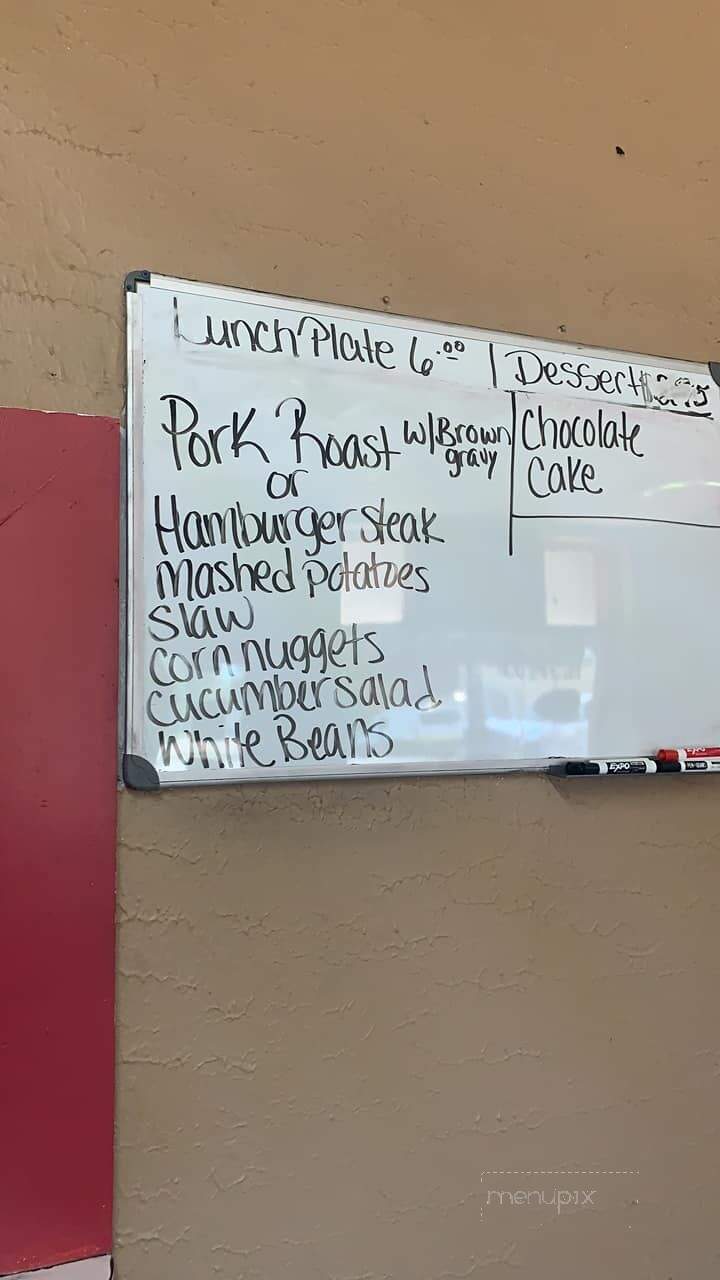 Lunch Plate 6.00 | Dessert
Pork Roast w/Brown gravy
or
Hamburger steak
mashed potatoes
slaw
corn nuggets
cucumber salad
White Beans
Chocolate
Cake
EXPO
EXPO
menupix